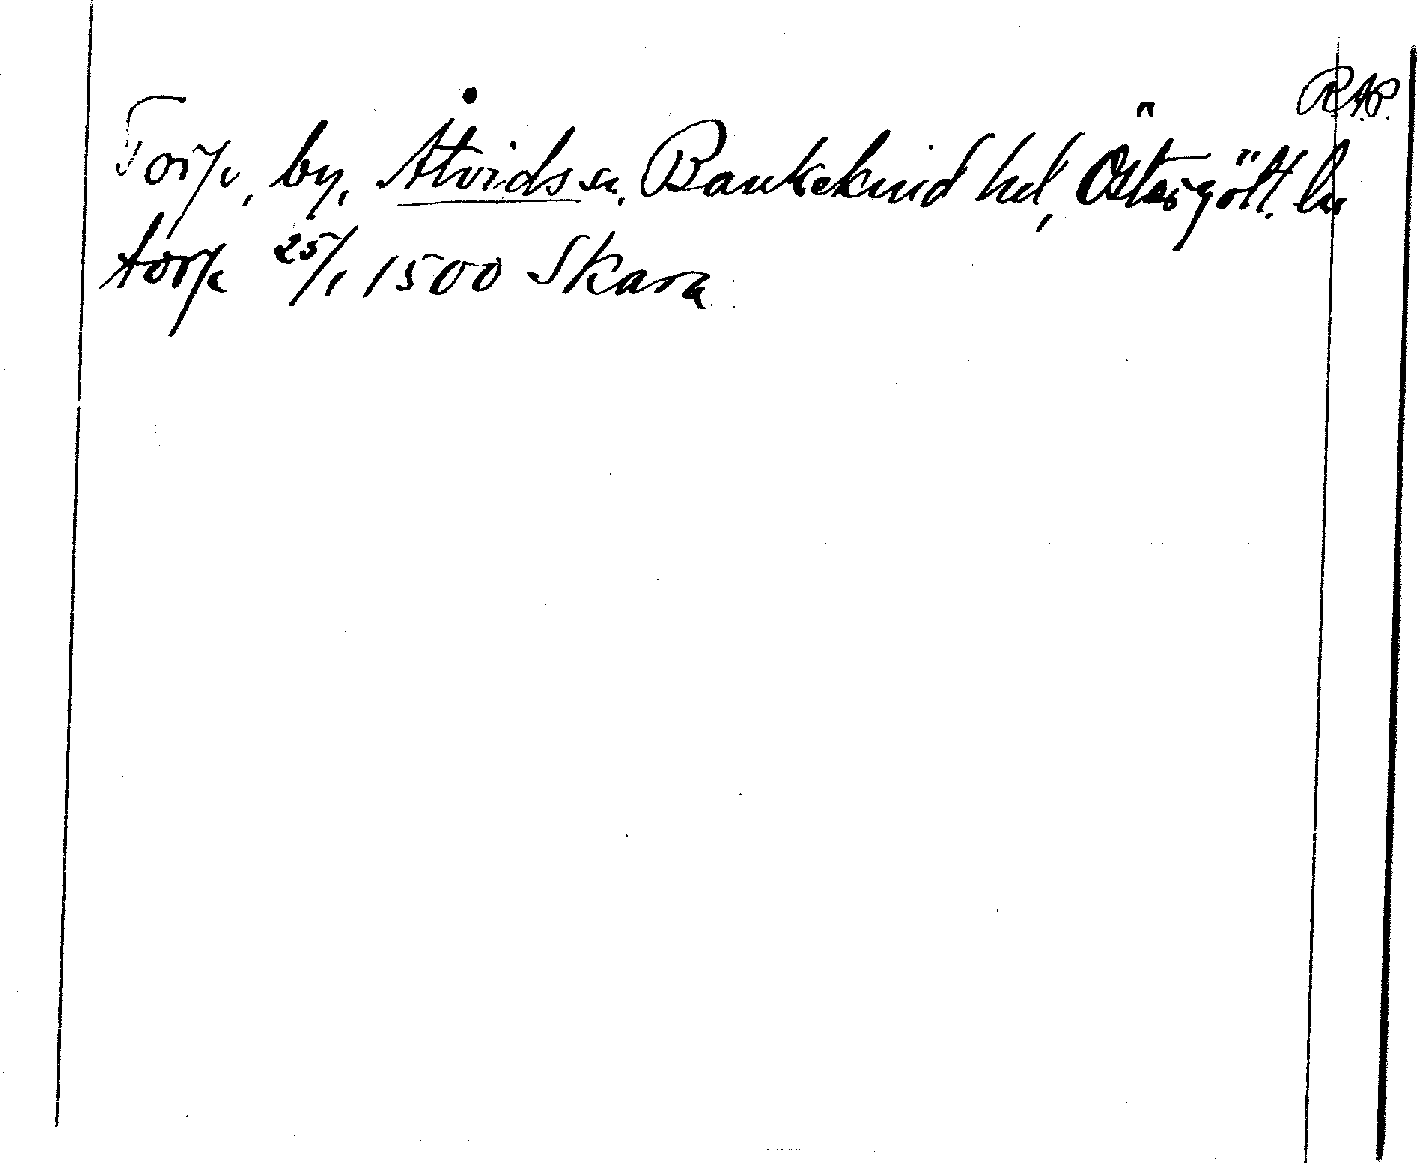 RAP.
Torp, by, Åtvids sn. Bankekind hd, Östergötl. län
torp 25/1 1500 Skara